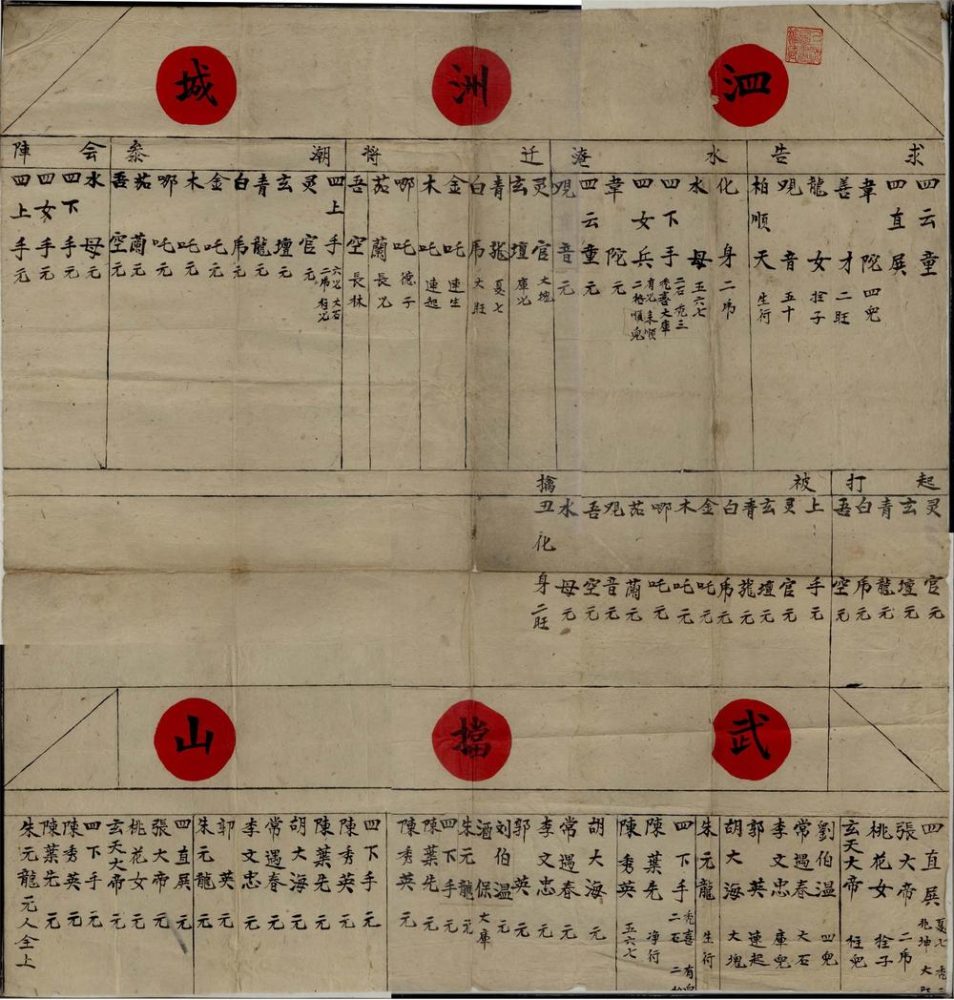 泗洲城
求告
四云童
四直展
韋陀 四兒
善才 二旺
龍女 拴子
觀音 五十
柏順天 生行
水淹
化身 二馬
水母 五六七
四下手 二石 尭三 尭喜 大庫
四女兵 有兒 来順 二格 順兒
韋陀 元
四云童 元
观音 元
迁将
灵官 大塊
玄壇 庫兒
青龍 夏七
白馬 大旺
金吒 連生
木吒 連起
哪吒 德子
茄蘭 長兒
吾空 長林
潮叅
四上手 六兒 大石 二馬 柱兒
灵官 元
玄壇 元
青龍 元
白馬 元
金吒 元
木吒 元
哪吒 元
茄蘭 元
吾空 元
会陣
水母 元
四下手 元
四女手 元
四上手 元
起打
灵官 元
玄壇 元
青龍 元
白馬 元
吾空 元
被擒
上手 元
灵官 元
玄壇 元
青龍 元
白馬 元
金吒 元
木吒 元
哪吒 元
茄蘭 元
观音 元
吾空 元
水母 元
丑化身 二旺
武擋山
四直展 夏七 尭三 兆坤 大旺
張大帝 二馬
桃花女 拴子
玄天大帝 柱兒
劉伯温 四兒
常遇春 大石
李文忠 庫兒
郭英 連起
胡大海 大塊
朱元龍 生行
四下手 尭喜 二石
陳葉先 净行
陳秀英 五六七
胡大海 元
常遇春 元
李文忠 元
郭英 元
刘伯温 元
酒保 大庫
朱元龍 元
四下手 元
陳葉先 元
陳秀英 元
四下手 元
陳秀英 元
陳葉先 元
胡大海 元
常遇春 元
李文忠 元
郭英 元
朱元龍 元
四直展 元
張大帝 元
桃花女 元
玄天大帝 元
四下手 元
陳秀英 元
陳葉先 元
朱元龍 元人仝上